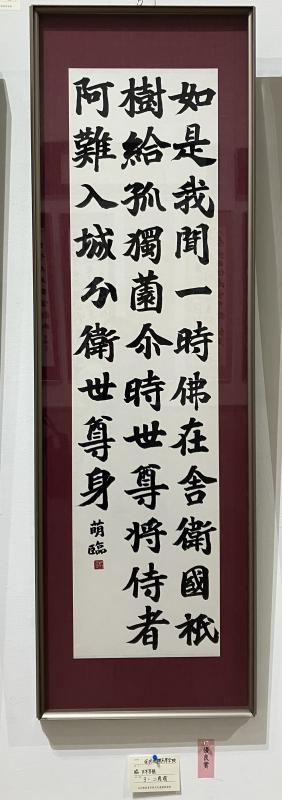 如是我聞一時佛在舎衛國祇
樹給孤獨薗尒時世尊将侍者
阿難入城分衛世尊身
萌臨
優良賞